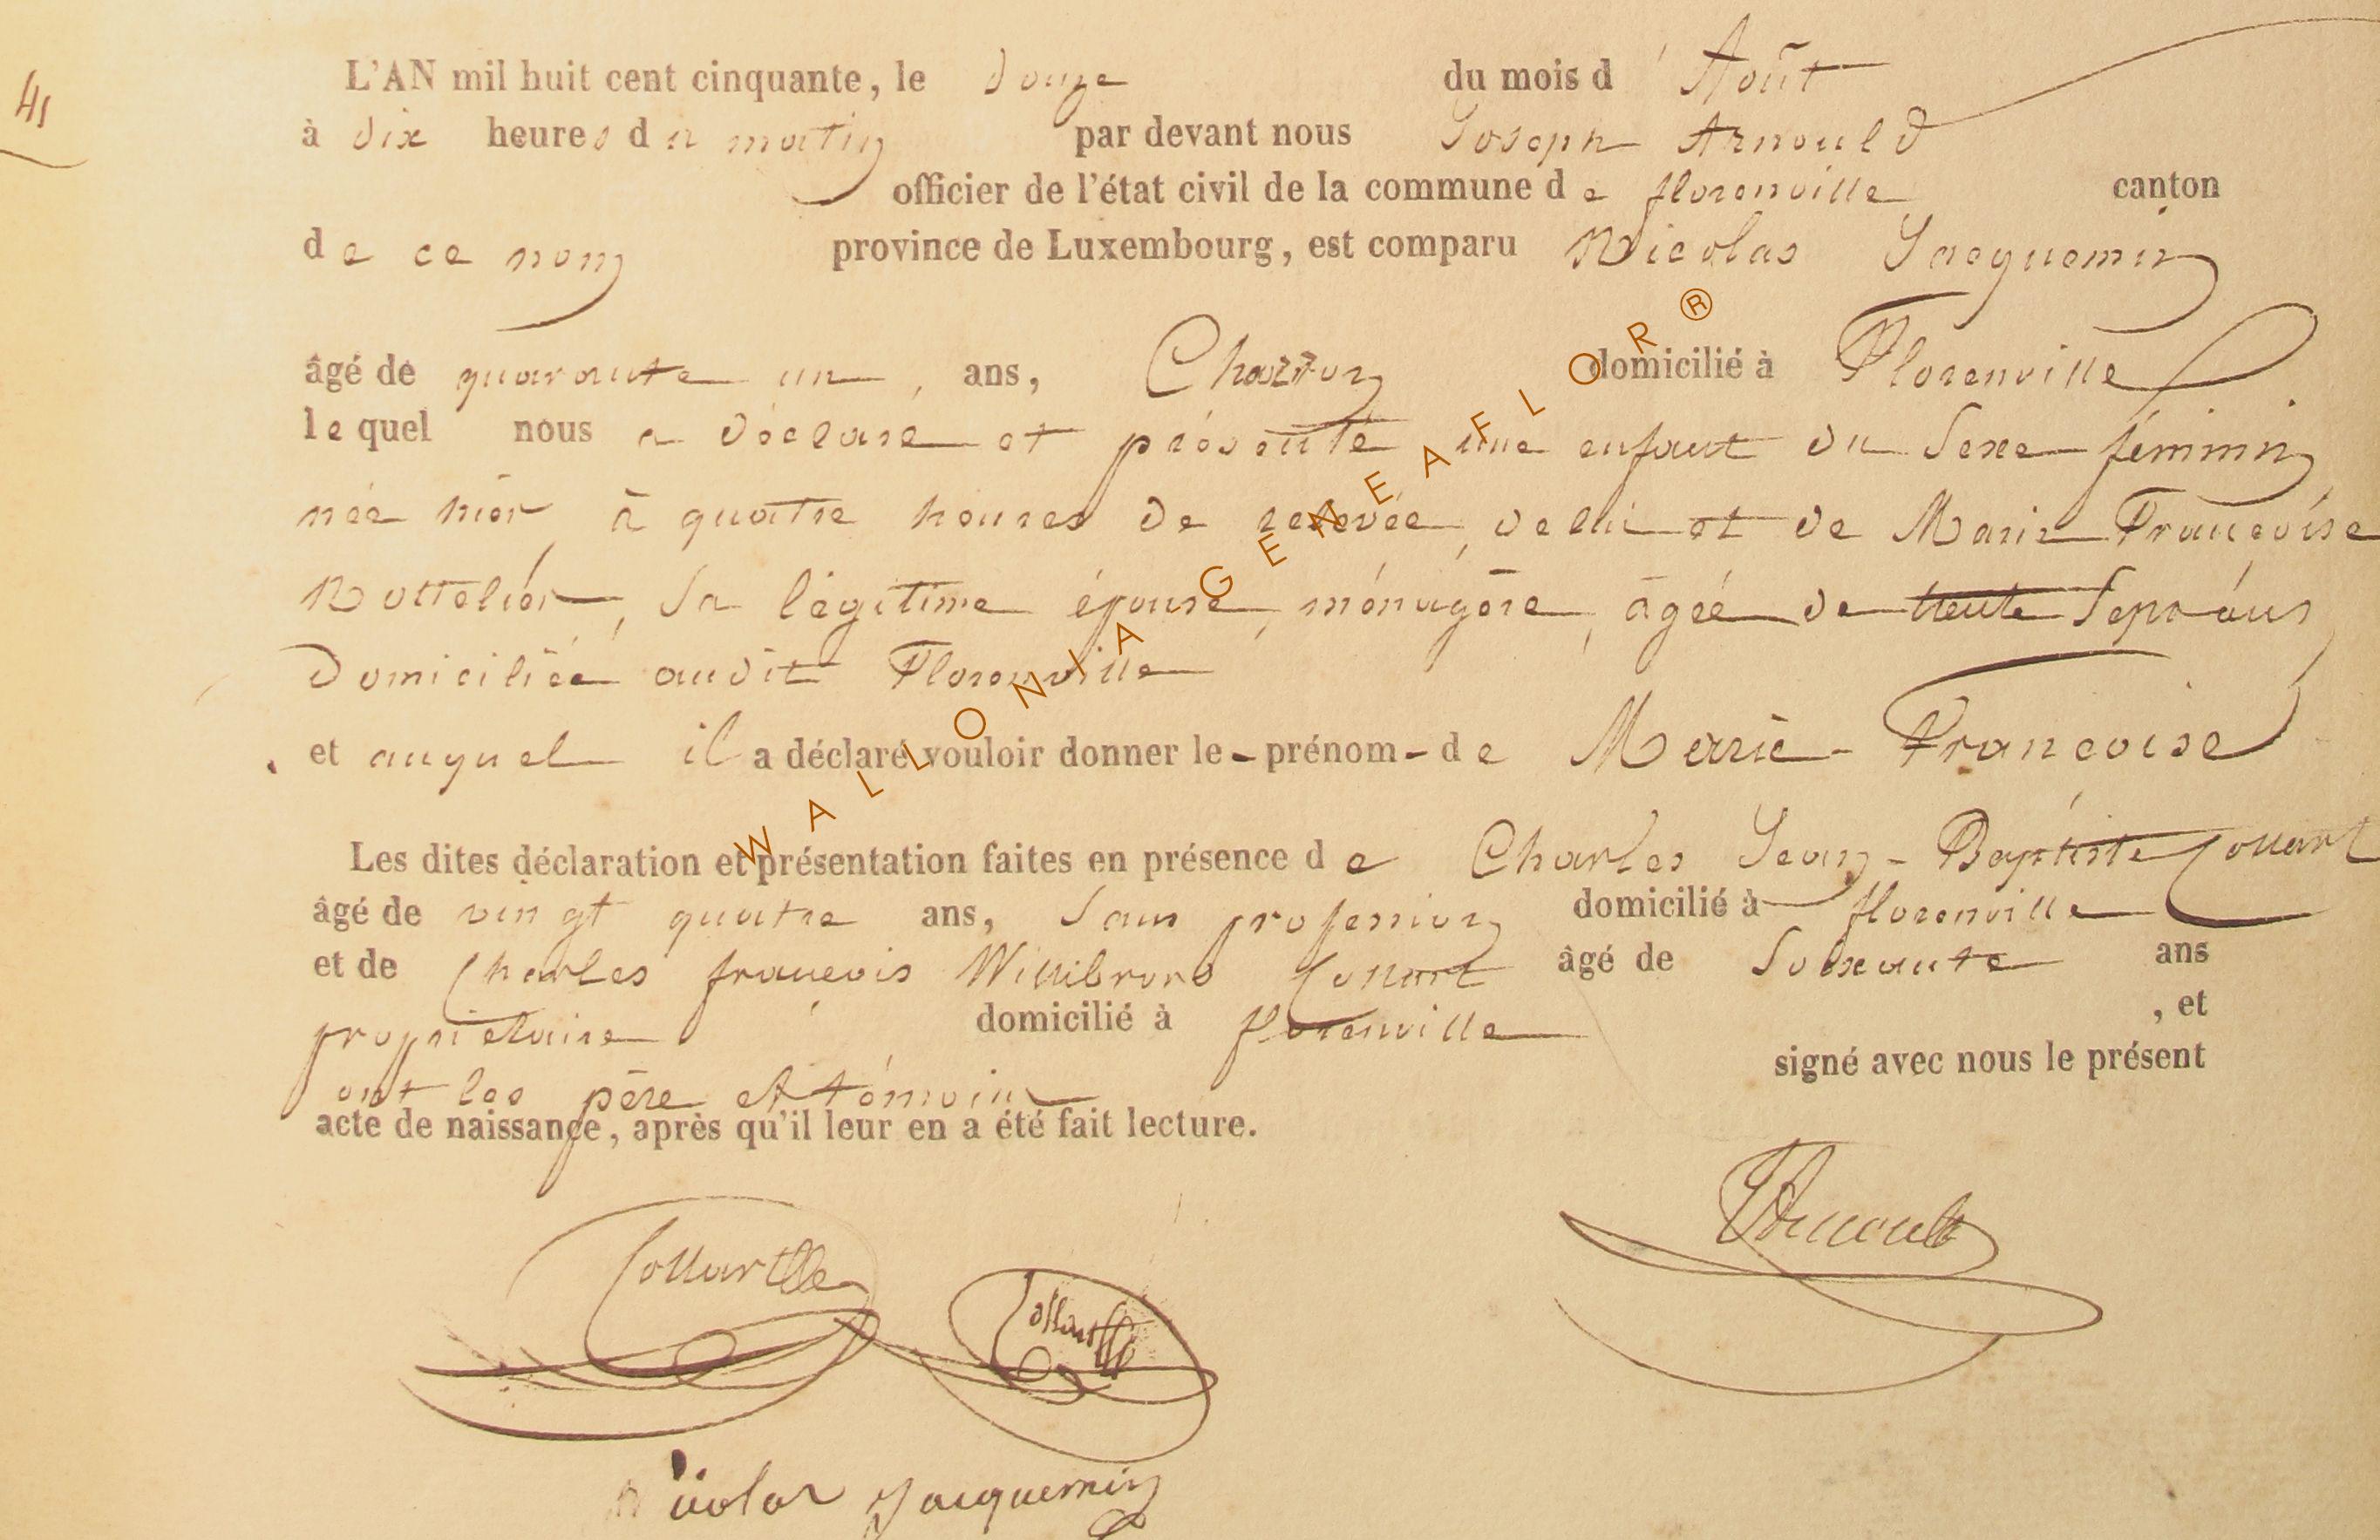 41
L'AN mil huit cent cinquante, le douze du mois d'Août
à dix heures du matin par devant nous Joseph Arnould
officier de l'état civil de la commune de florenville canton
de ce nom province de Luxembourg, est comparu Nicolas Jacquemin
âgé de quarante un, ans, Charron domicilié à Florenville
lequel nous a déclaré et présenté une enfant du Sexe féminin
née hier à quatre heures de relevée, de lui et de Marie Françoise
Nottelier, Sa légitime épouse, ménagère, âgée de trente Sept ans
Domiciliée audit Florenville
et auquel il a déclaré vouloir donner le - prénom - de Marie - Françoise
Les dites déclaration et présentation faites en présence de Charles Jean - Baptiste Collart
âgé de vingt quatre ans, Sans profession domicilié à florenville
et de Charles françois Willibrord Collart âgé de Soixante ans
propriétaire domicilié à florenville , et
ont les père et témoins signé avec nous le présent
acte de naissance, après qu'il leur en a été fait lecture.
Collart
Collart
JArnould
Nicolas Jacquemin
WALLONIA GENEAFLOR ®